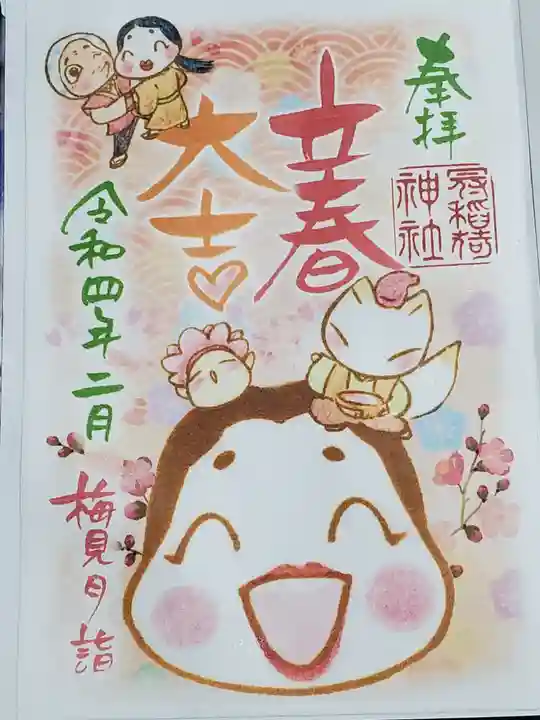 奉拝
冠稲荷
神社
立春
大吉♡
令和四年二月
梅見月詣